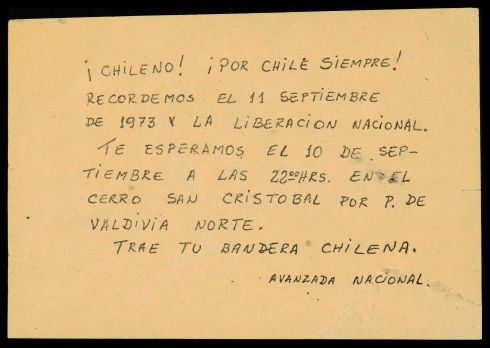 ¡CHILENO! ¡POR CHILE SIEMPRE!
RECORDEMOS EL 11 SEPTIEMBRE
DE 1973 Y LA LIBERACION NACIONAL.
TE ESPERAMOS EL 10 DE SEP-
TIEMBRE A LAS 22ººHRS. EN EL
CERRO SAN CRISTOBAL POR P. DE
VALDIVIA NORTE.
TRAE TU BANDERA CHILENA.
AVANZADA NACIONAL.